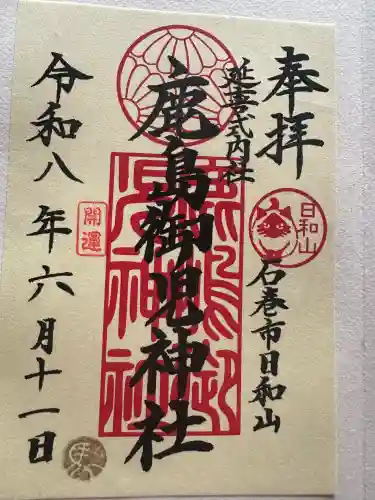 奉拝
延喜式内社
日和山
石巻市日和山
鹿島御児神社
鹿島御児神社
開運
令和八年六月十一日